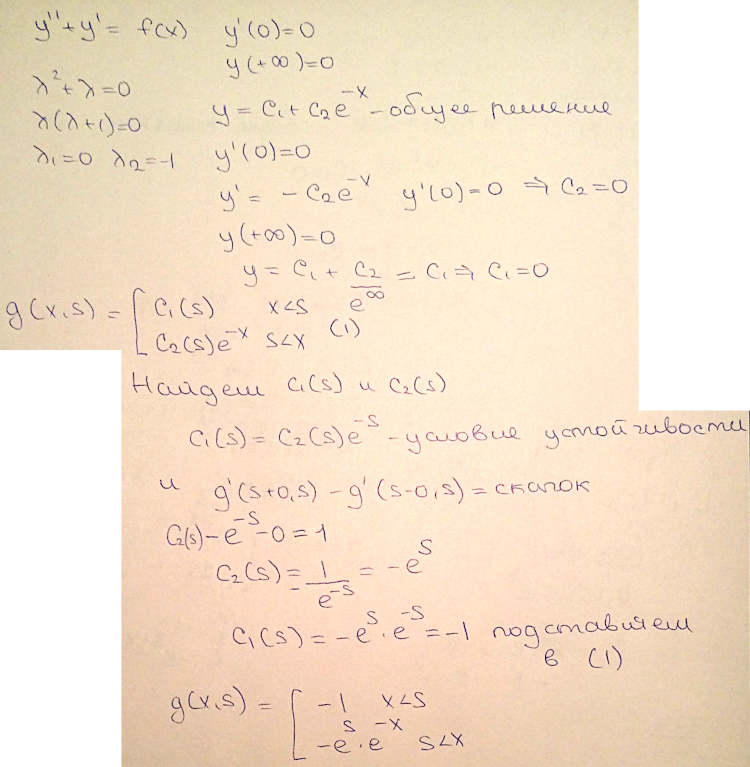 y'' + y' = f(x)  y'(0) = 0
y(+∞) = 0
λ² + λ = 0
y = C₁ + C₂e^{-x} - общее решение
λ(λ+1) = 0
λ₁ = 0  λ₂ = -1  y'(0) = 0
y' = -C₂e^{-x}  y'(0) = 0 ⇒ C₂ = 0
y(+∞) = 0
y = C₁ + C₂/e^∞ = C₁ ⇒ C₁ = 0
g(x,s) = [ C₁(s)  x<s
C₂(s)e^{-x}  s<x  (1)
Найдем C₁(s) и C₂(s)
C₁(s) = C₂(s)e^{-s} - условие устойчивости
и g'(s+0,s) - g'(s-0,s) = скачок
C₂(s) - e^{-s} - 0 = 1
C₂(s) = -1/e^{-s} = -e^s
C₁(s) = -e^s · e^{-s} = -1 подставляем
в (1)
g(x,s) = [ -1  x<s
-e^s · e^{-x}  s<x